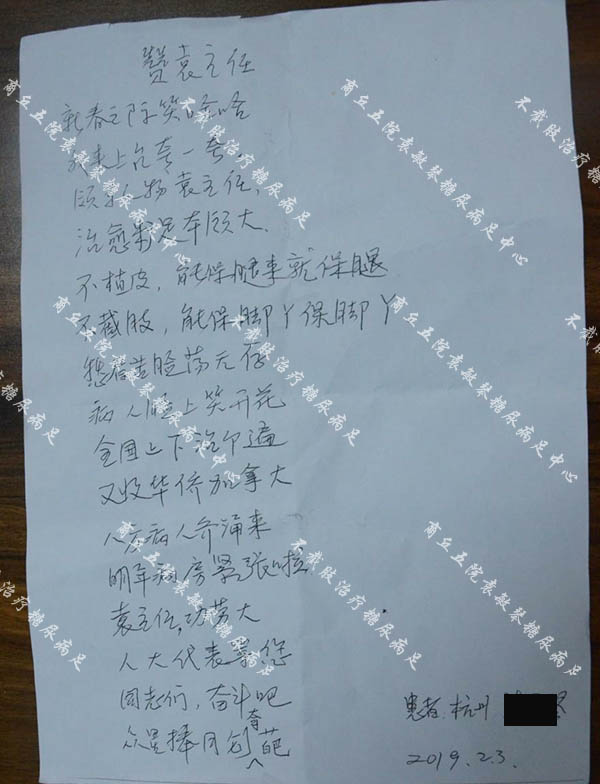 赞袁主任
新春之际笑哈哈
我来上台夸一夸
人物袁主任,
治愈率
不植皮，能保腿来就保腿
不截肢，能保脚丫保脚丫
脸荡无存
病人脸上笑开花
全国上下治个遍
又收华侨加拿大
八方病人齐涌来
明年病房紧张啦
袁主任,功劳大
人大代表等您
同志们，奋斗吧
众星捧月创奇葩
患者:杭州
2019.2.3.
商丘五院袁敏琴糖尿病足中心
不截肢治疗糖尿病足
商丘五院袁敏琴糖尿病足中心
不截肢治疗糖尿病足
商丘五院袁敏琴糖尿病足中心
不截肢治疗糖尿病足
商丘五院袁敏琴糖尿病足中心
不截肢治疗糖尿病足